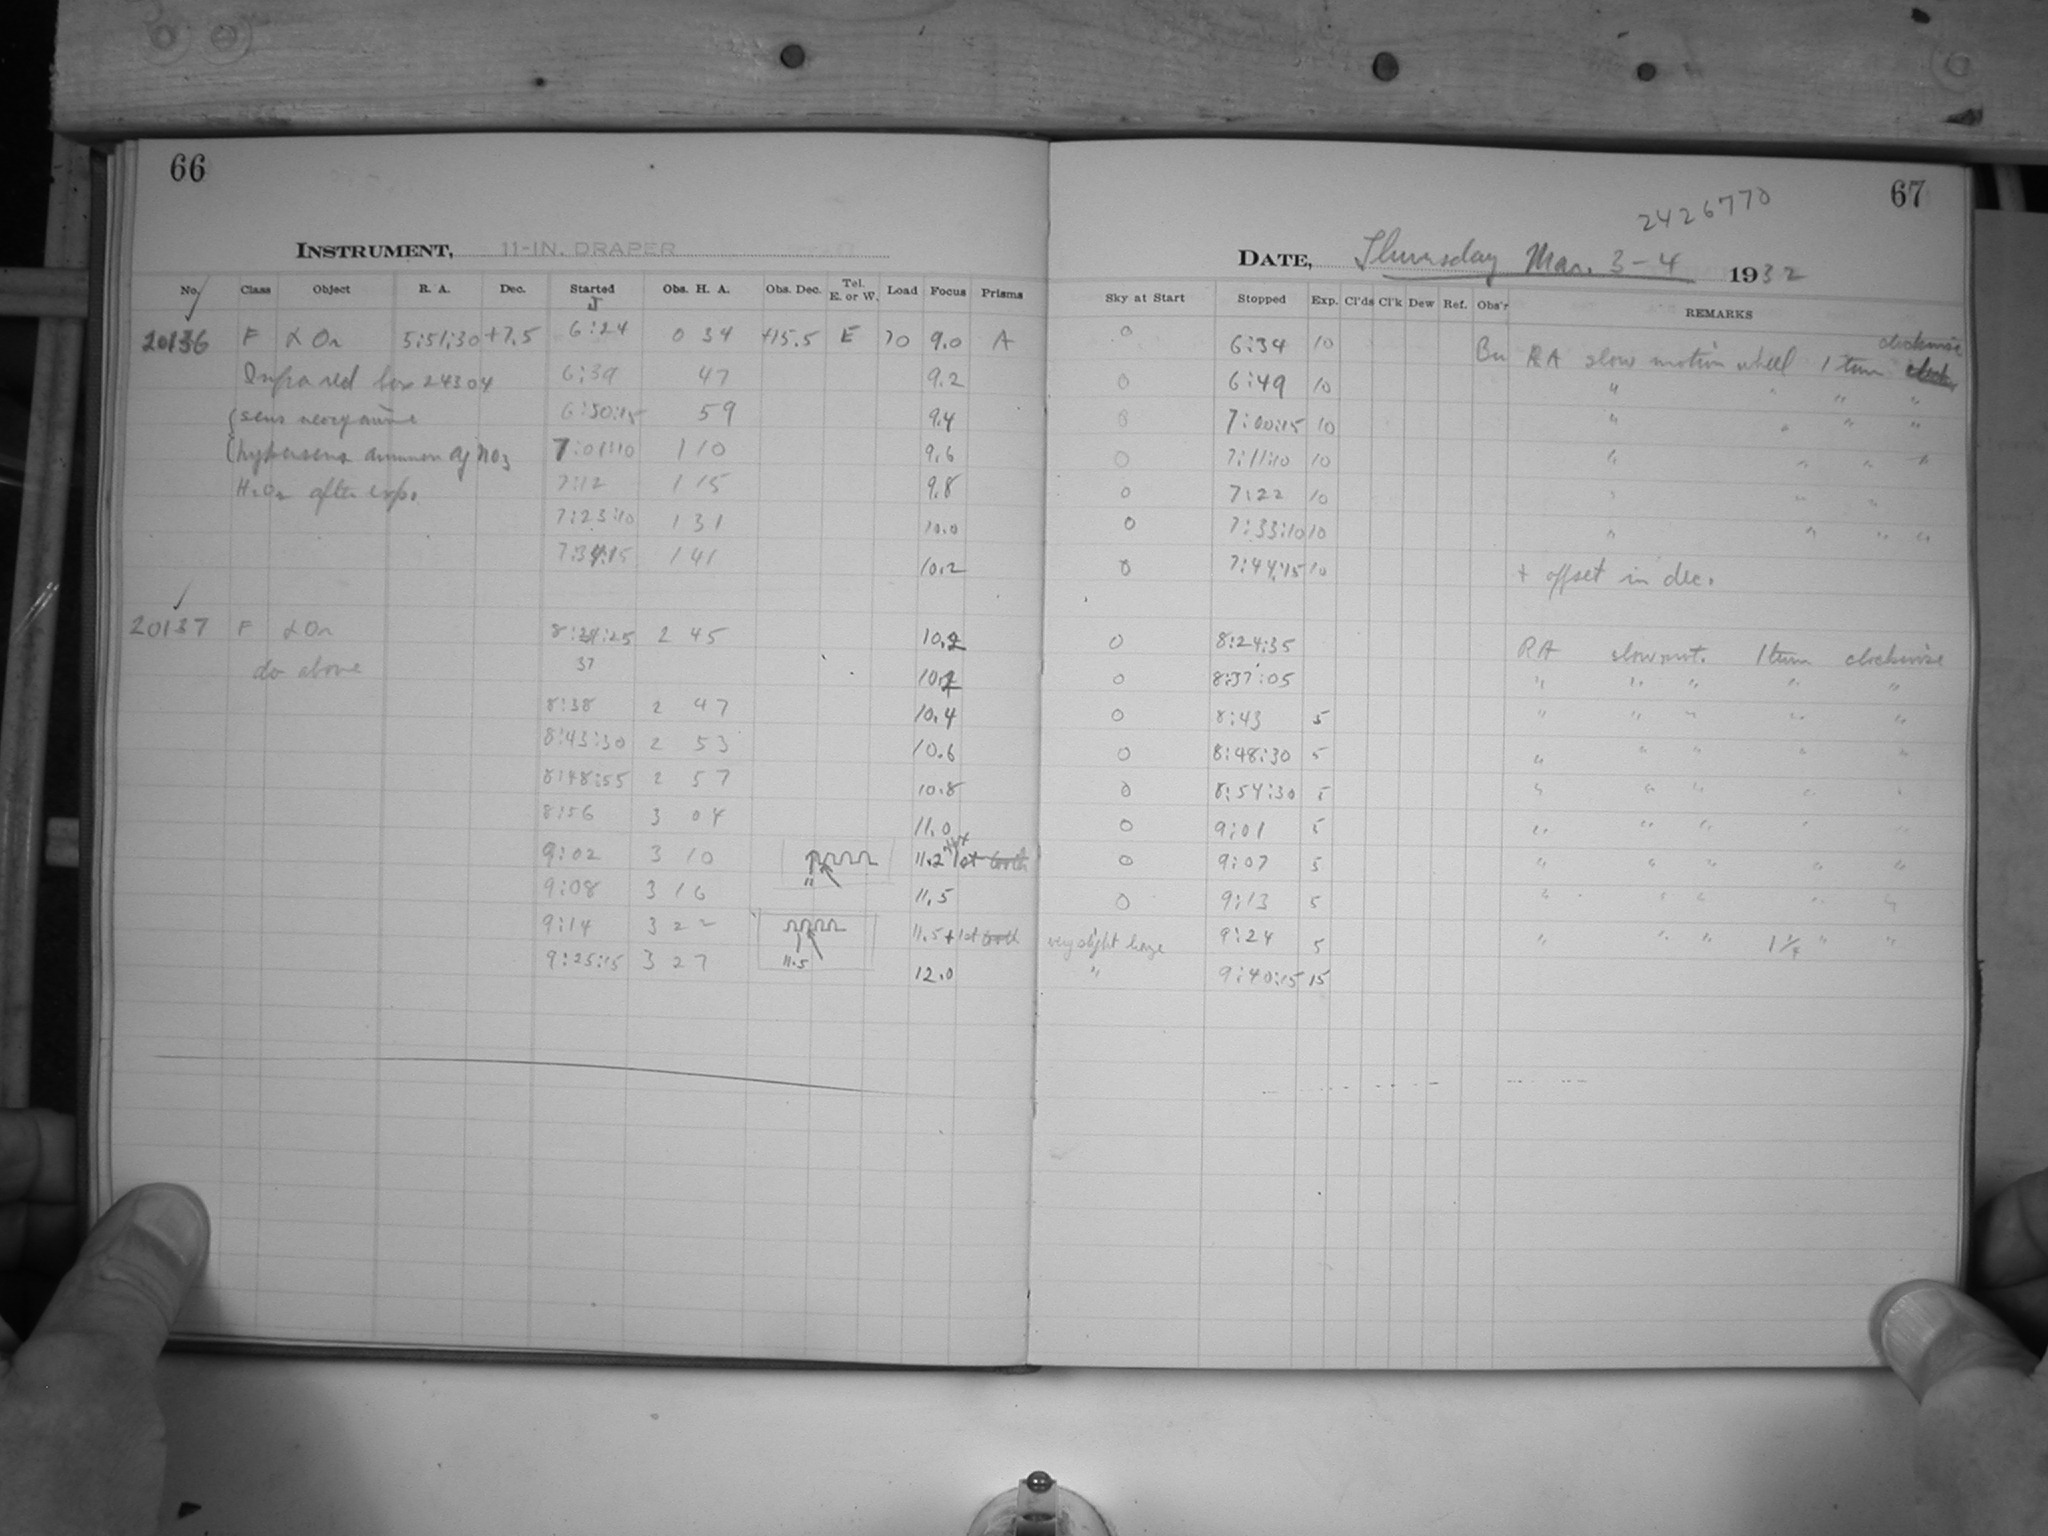 66
INSTRUMENT, 11-IN. DRAPER
No. Class Object R. A. Dec. Started Obs. H. A. Obs. Dec. Tel. E. or W. Load Focus Prisms
20136 F α Or 5:51:30 +7.5 6:24 0 34 +15.5 E 70 9.0 A
Infra red box 24304 6:39 47 9.2
(sens neocyanine 6:50:15 59 9.4
(hypersens ammon Ag NO3 7:01:10 1 10 9.6
H2O2 after exp. 7:12 1 15 9.8
7:23:10 1 31 10.0
7:34:15 1 41 10.2
20137 F α Or 8:24:25 2 45 10.2
do above 37
8:38 2 47 10.4
8:43:30 2 53 10.6
8:48:55 2 57 10.8
8:56 3 04 11.0
9:02 3 10 11 11.2 1st tooth
9:08 3 16 11.5
9:14 3 22 11.5+1st tooth
9:25:15 3 27 11.5 12.0
67
2426770
DATE, Thursday Mar. 3-4 1932
Sky at Start Stopped Exp. Cl'ds Cl'k Dew Ref. Obs'r REMARKS
0 6:34 10 Bu RA slow motion wheel 1 turn clockwise
0 6:49 10 " " " "
0 7:00:15 10 " " " "
0 7:11:10 10 " " " "
0 7:22 10 " " "
0 7:33:10 10 " " " "
0 7:44:15 10 + offset in dec.
0 8:24:35 RA slow mot. 1 turn clockwise
0 8:37:05 " " " " "
0 8:43 5 " " " " "
0 8:48:30 5 " " " " "
0 8:54:30 5 " " " " "
0 9:01 5 " " " " "
0 9:07 5 " " " " "
0 9:13 5 " " " " "
very slight haze 9:24 5 " " " 1 1/4 " "
" 9:40:15 15